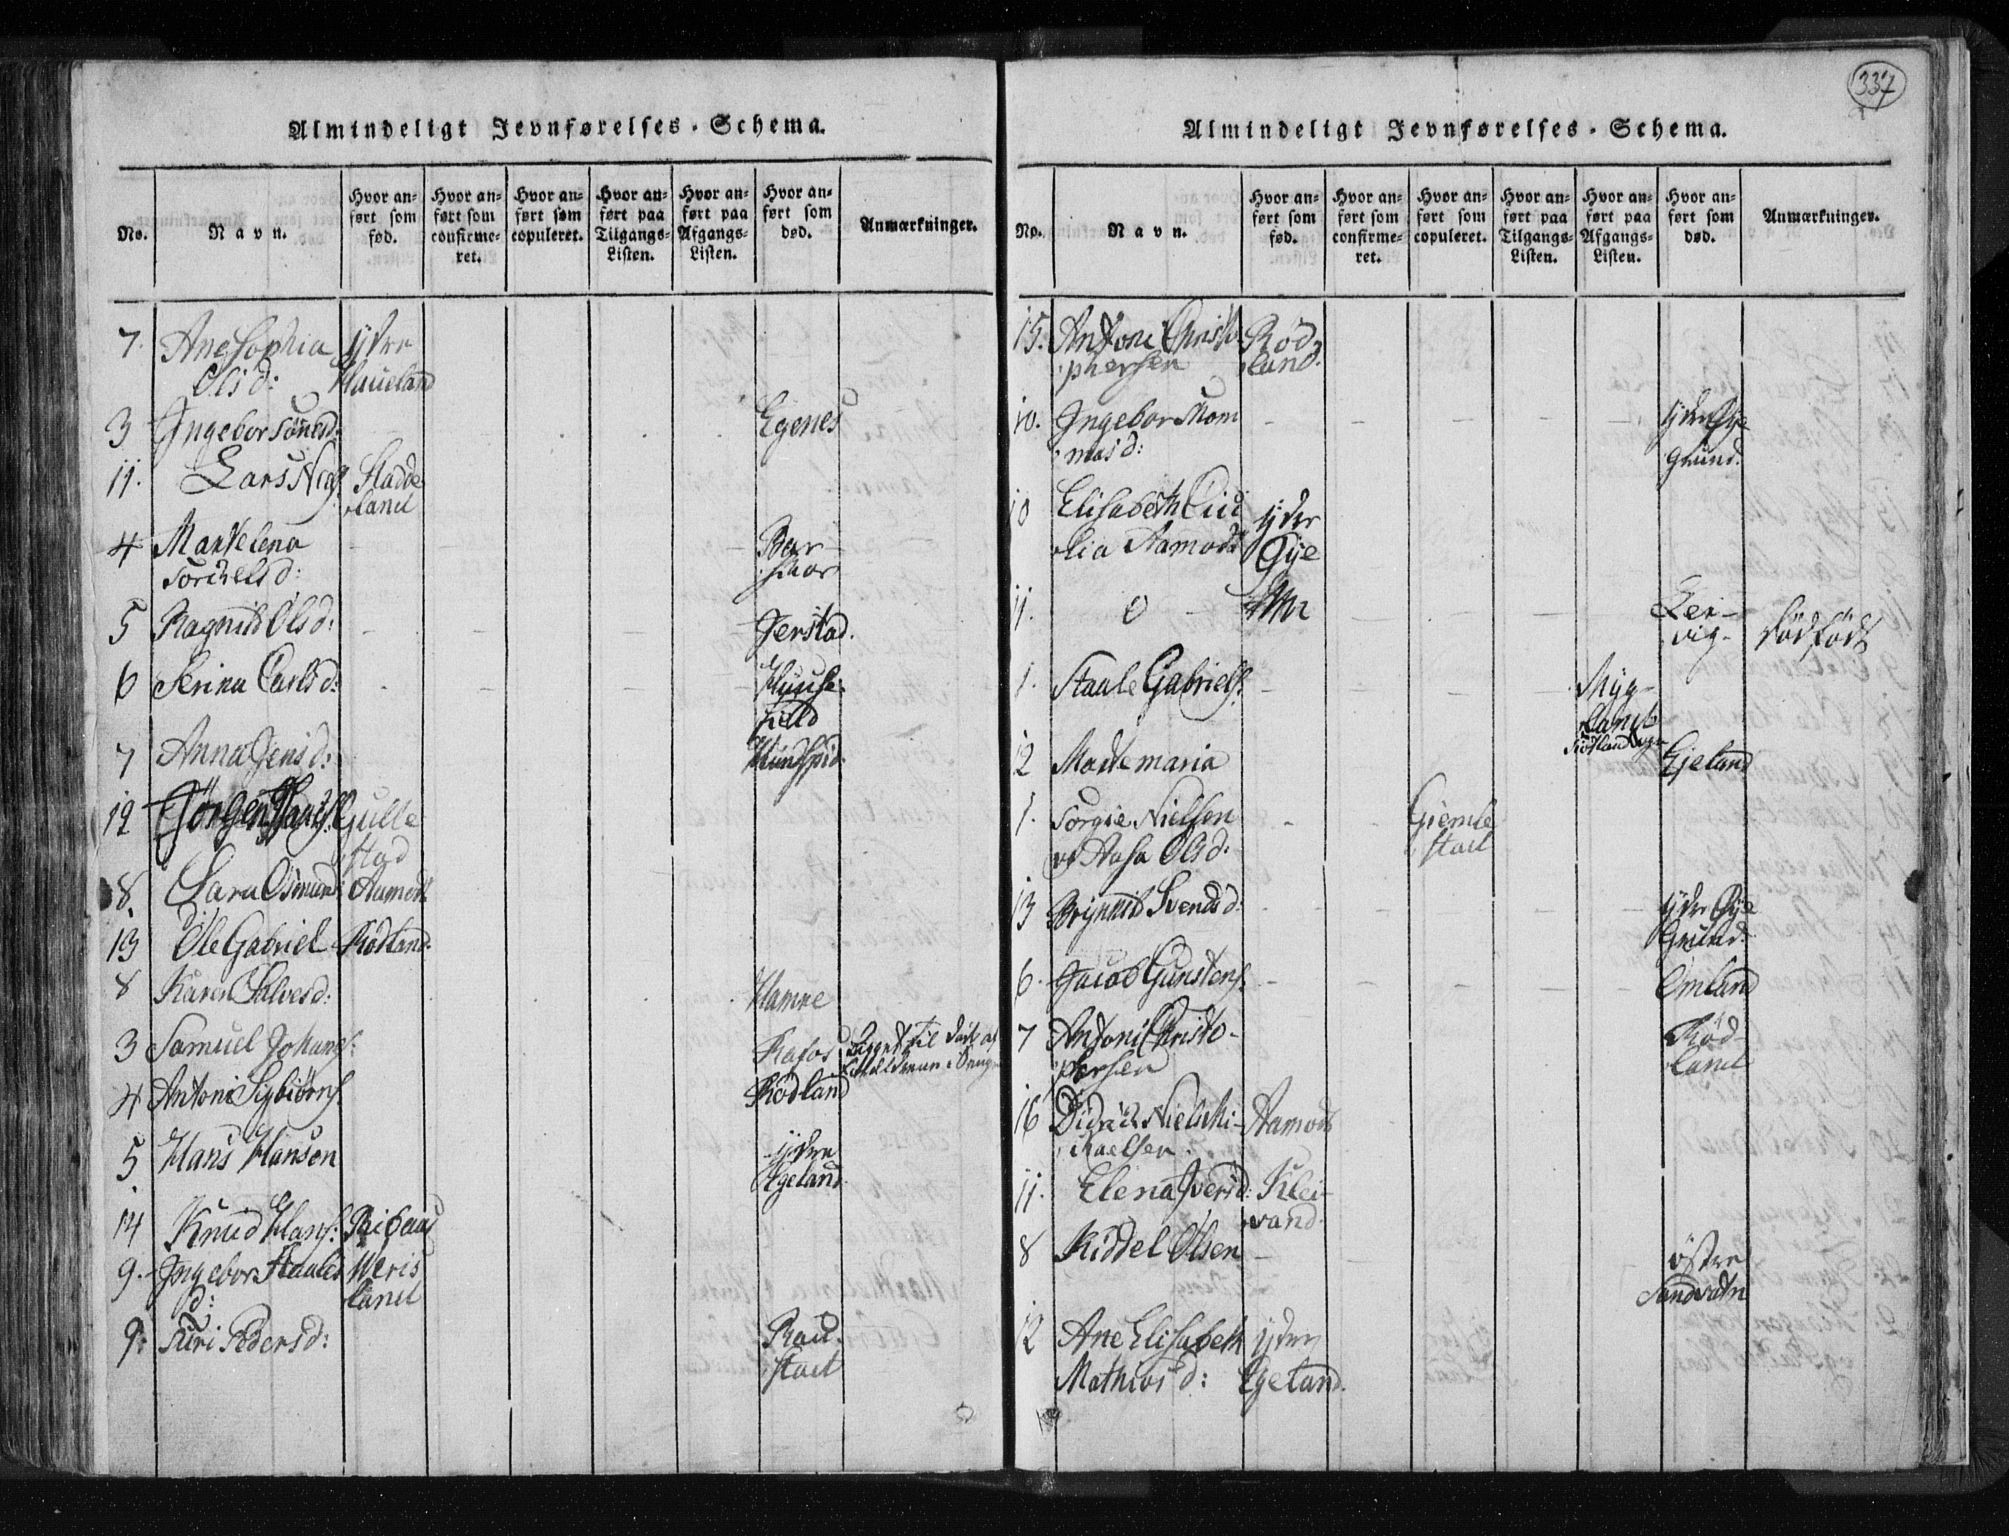 337
Almindeligt Jevnførelses-Schema.
No. Navn. Hvor anført som fød. Hvor anført som confirmeret. Hvor anført som copuleret. Hvor anført paa Tilgangs-Listen. Hvor anført paa Afgangs-Listen. Hvor anført som død. Anmærkninger.
7. Ane Sophia Ydre
Olsd: Haueland
3 Ingebor Egenes
11. Lars Stadde
land
4 Martelena
Torkelsd:
5 Ragnild Olsd: Jerstad.
6 Serina Carlsd:
field
7 Anna Jensd:
12 Jørgen Gulle
stad
8. Sara Osmund Aamodt
13 Ole Gabriel Rødland.
8 Karen Salvesd: Hamre
3 Samuel Johans: Rafos til
4 Antoni Sigbiørns. Rødland
5 Hans Hansen Ydre
Egeland.
14 Knud Hans:
9. Ingebor Staales
d: land
9: Siri Pedersd: Rau
stad
Almindeligt Jevnførelses-Schema.
No. Navn. Hvor anført som fød. Hvor anført som confirmeret. Hvor anført som copuleret. Hvor anført paa Tilgangs-Listen. Hvor anført paa Afgangs-Listen. Hvor anført som død. Anmærkninger.
15. Antoni Christo Rød
phersen land.
10. Ingebor Thom Ydre Øye
masd: Grund.
10 Elisabeth Ydre
Aamodt Øye
11. 0 Lei-
vig- dødfødt
1. Staale Gabriels. Myg-
land
12 Martemaria Ejeland
1. Torgie Nielsen Giemle
Aasa Olsd. stad
13 Brynnild Svendsd. Ydre Øye
Grund.
6. Jacob Gunstens. Omland
7 Antoni Christo- Rød-
phersen land
16 Didrich Niels Mi- Aamodt
chaelsen.
11. Elena Iversd: Klei-
vand.
8 Riddel Olsen Østre
Sandvatn
12 Ane Elisabeth Ydre
Mathiasd: Egeland.